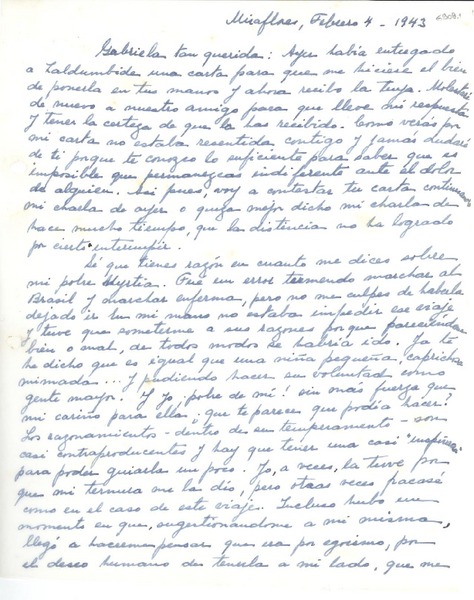 Miraflores, Febrero 4 - 1943
Gabriela tan querida: Ayer había entregado
a Zaldumbide una carta para que me hiciese el bien
de ponerla en tus manos y ahora recibo la tuya. Molestaré
de nuevo a nuestro amigo para que lleve mi respuesta
y tener la certeza de que la has recibido. Como verás por
mi carta no estaba resentida contigo y jamás dudaré
de ti porque te conozco lo suficiente para saber que es
imposible que permanezcas indiferente ante el dolor
de alguien. Así pues, voy a contestar tu carta continuando
mi charla de ayer o quizá mejor dicho mi charla de
hace mucho tiempo, que la distancia no ha logrado
por cierto interrumpir.
Sé que tienes razón en cuanto me dices sobre
mi pobre Myrtia. Fué un error tremendo marchar al
Brasil y marchar enferma, pero no me culpes de haberla
dejado ir. En mi mano no estaba impedir ese viaje
y tuve que someterme a sus razones porque pareciéndome
bien o mal, de todos modos se habría ido. Ya te
he dicho que es igual que una niña pequeña, caprichosa
mimada... y pudiendo hacer su voluntad como
gente mayor. Y yo, pobre de mí! sin más fuerza que
mi cariño para ella, que te parece que podía hacer?
Los razonamientos - dentro de su temperamento - son
casi contraproducentes y hay que tener una casi "inspiración"
para poder guiarla un poco. Yo, a veces, la tuve por
que mi ternura me la dió, pero otras veces fracasé
como en el caso de este viaje. Incluso hubo un
momento en que, sugestionándome a mi misma,
llegó a hacerme pensar que era por egoismo, por
el deseo humano de tenerla a mi lado, que me